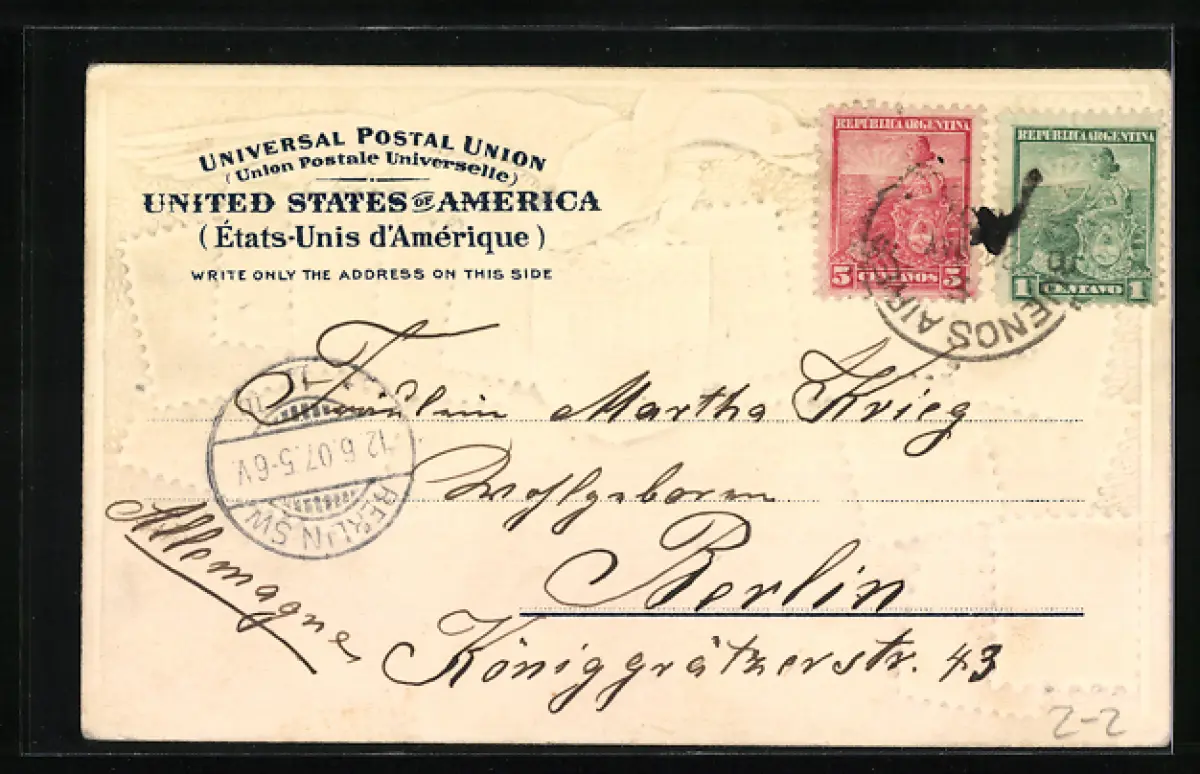 UNIVERSAL POSTAL UNION
(Union Postale Universelle)
UNITED STATES OF AMERICA
(États-Unis d'Amérique)
WRITE ONLY THE ADDRESS ON THIS SIDE
REPUBLICA ARGENTINA
5 CENTAVOS 5
REPUBLICA ARGENTINA
1 CENTAVO 1
BUENOS AIRES
Fräulein Martha Krieg
Wohlgeboren
Berlin
Königgrätzerstr. 43
Allemagne
BERLIN SW
12.6.07.5-6V.
2-2